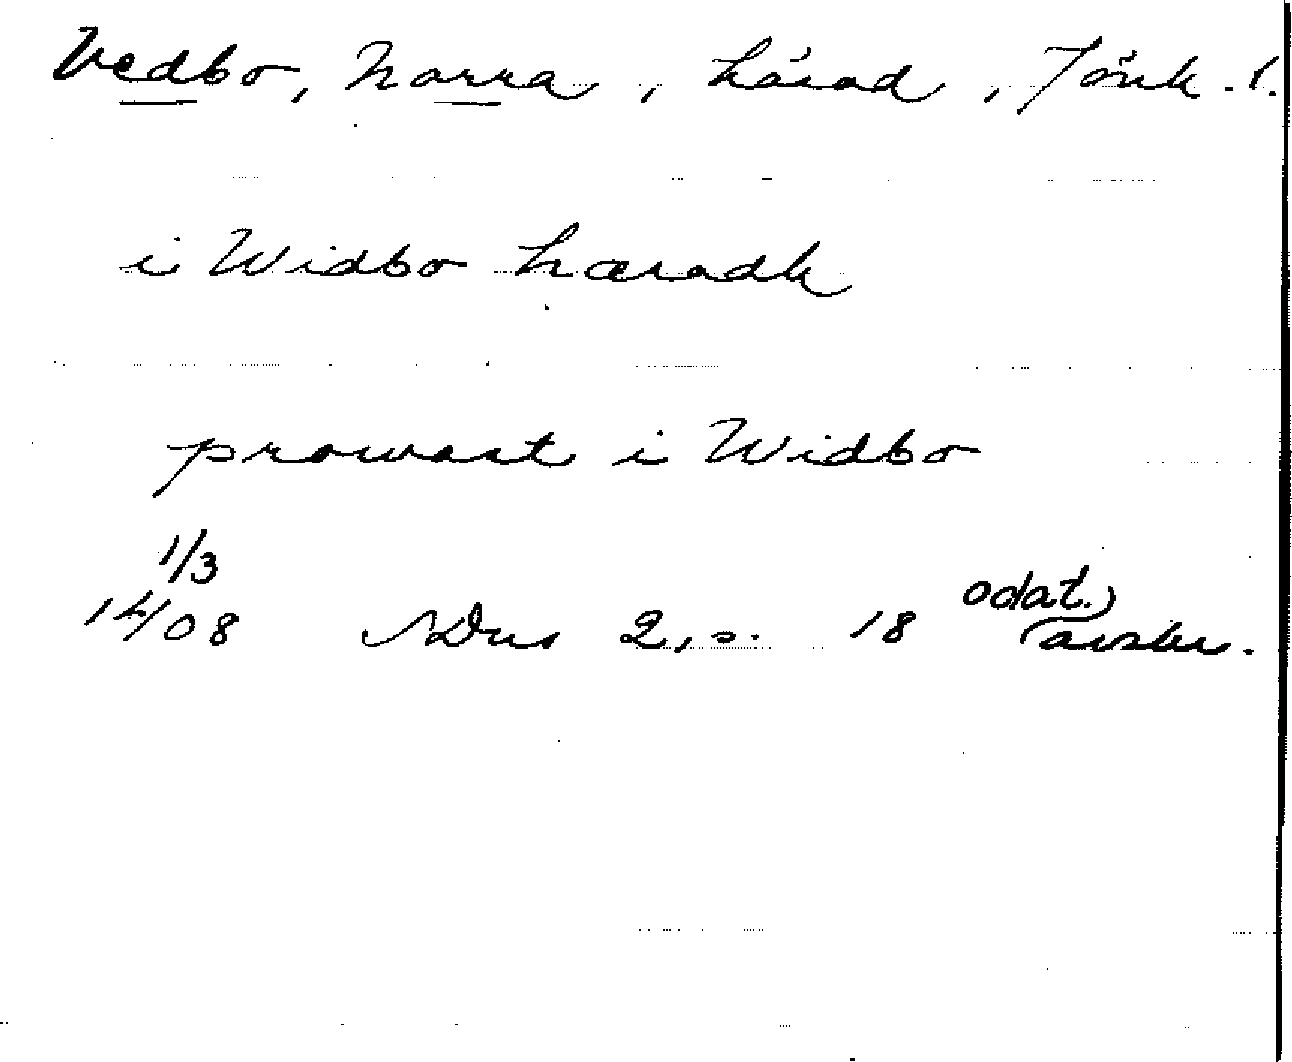 Vedbo, Norra, härad, Jönk. l.
i Widbo hæradh
prowast i Widbo
1/3
14/08 NDus 2, s. 18 odat.)
(avskr.